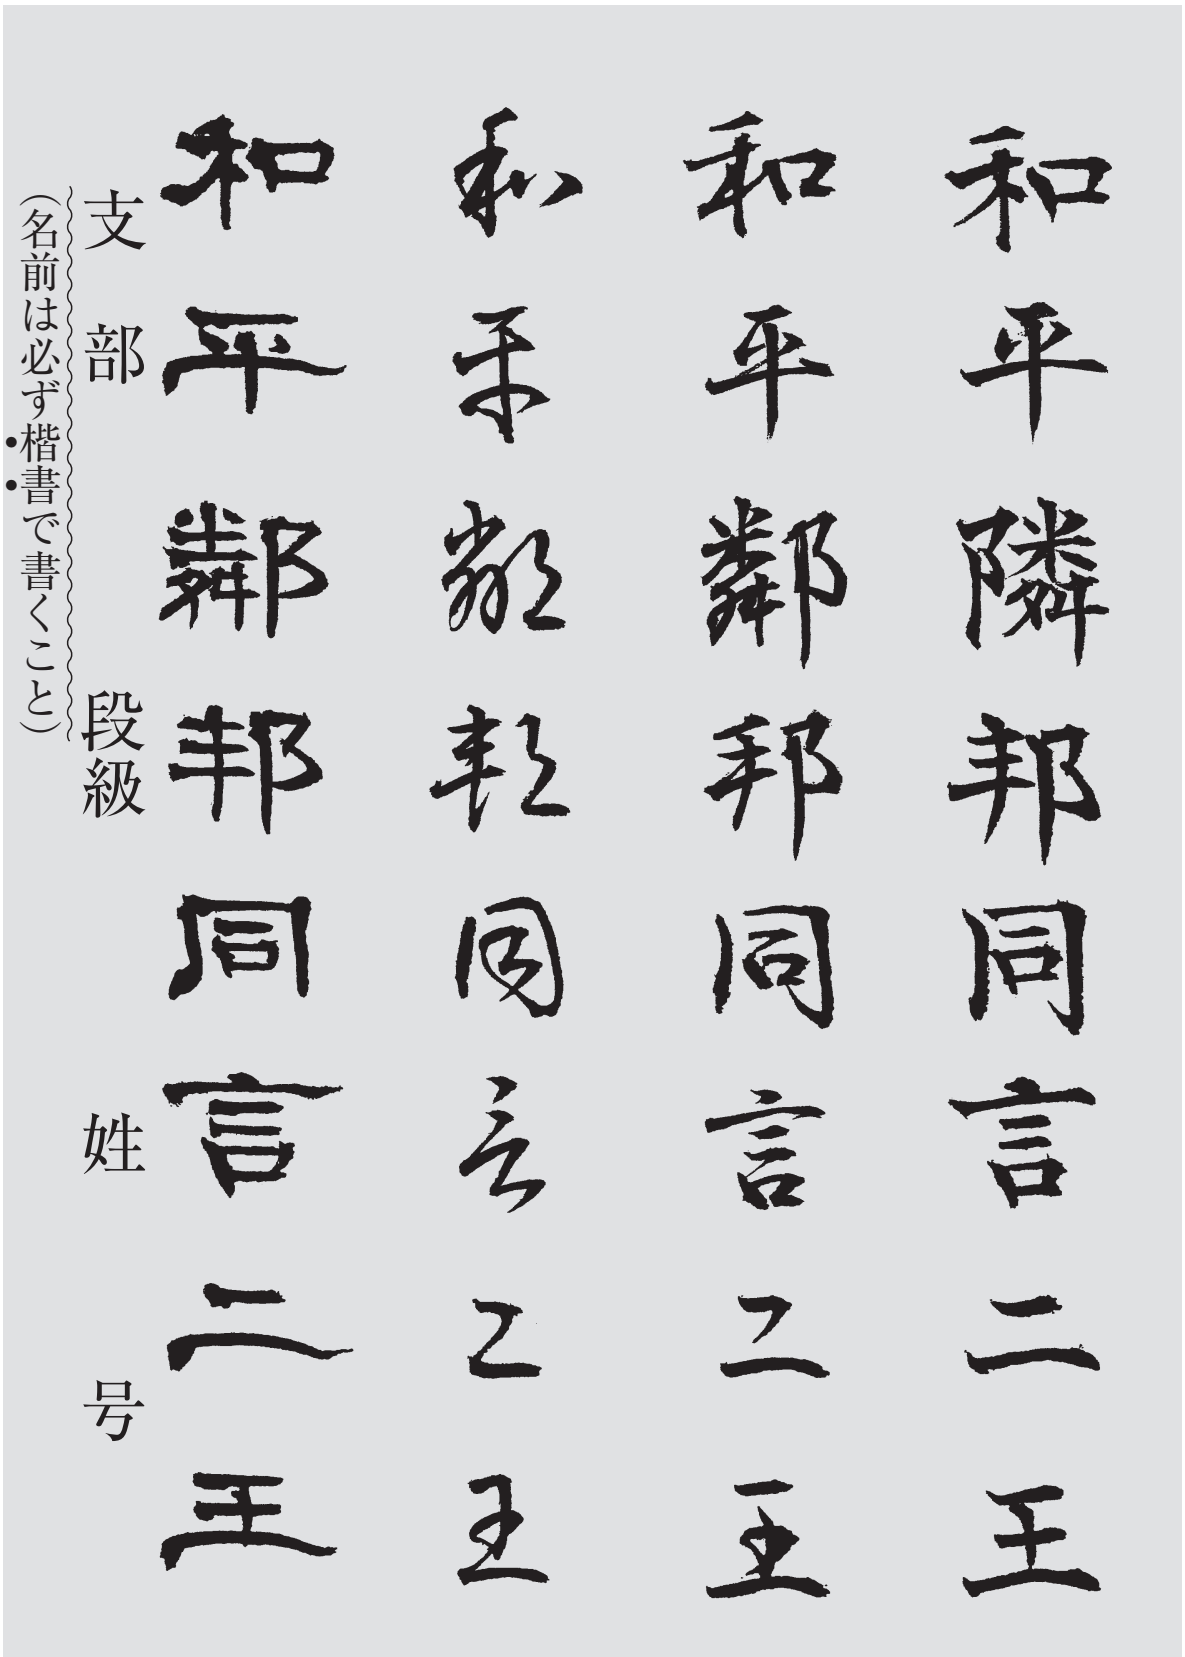 和平隣邦同言二王
和平鄰邦同言二王
和平鄰邦同言二王
和平鄰邦同言二王
支部 段級 姓 号
(名前は必ず楷書で書くこと)